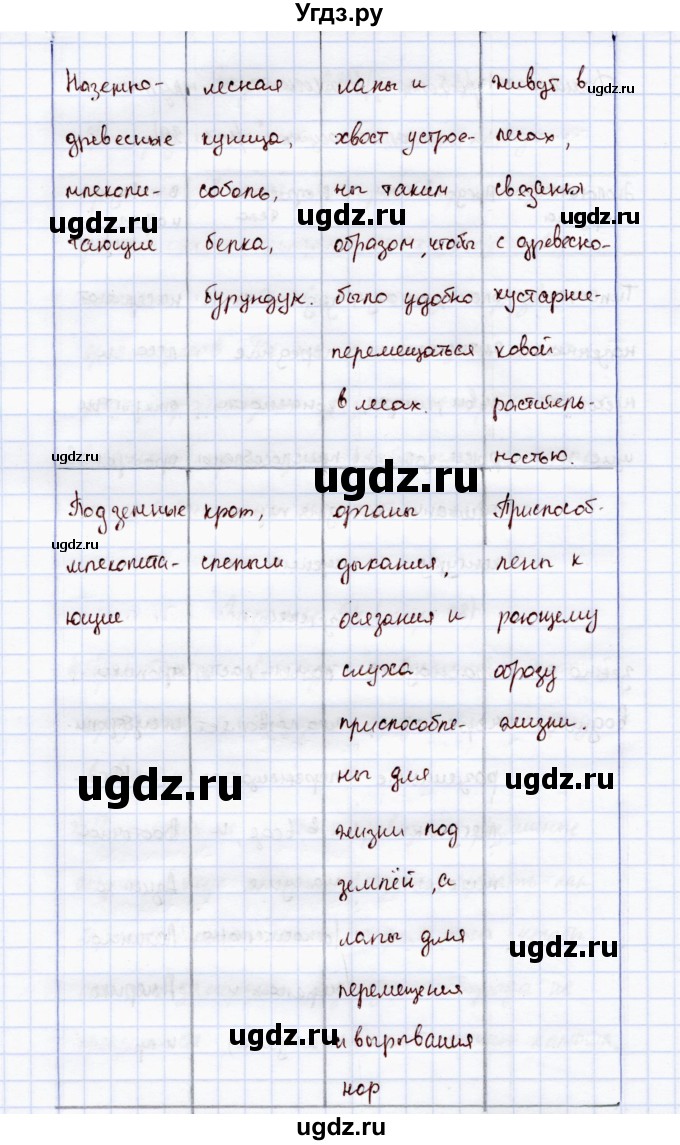 Угдз.ру
Наземно-
древесные
млекопи-
тающие
лесная
куница,
соболь,
белка,
бурундук.
лапы и
хвост устрое-
ны таким
образом, чтобы
было удобно
перемещаться
в лесах.
живут в
лесах,
связаны
с древесно-
кустарни-
ковой
раститель-
ностью.
Подземные
млекопита-
ющие
крот,
слепыш
органы
дыхания,
осязания и
слуха
приспособле-
ны для
жизни под
землёй, а
лапы для
перемещения
и вырывания
нор
Приспособ-
лены к
роющему
образу
жизни.
ugdz.ru
ugdz.ru
ugdz.ru
ugdz.ru
ugdz.ru
ugdz.ru
ugdz.ru
ugdz.ru
ugdz.ru
ugdz.ru
ugdz.ru
ugdz.ru
ugdz.ru
ugdz.ru